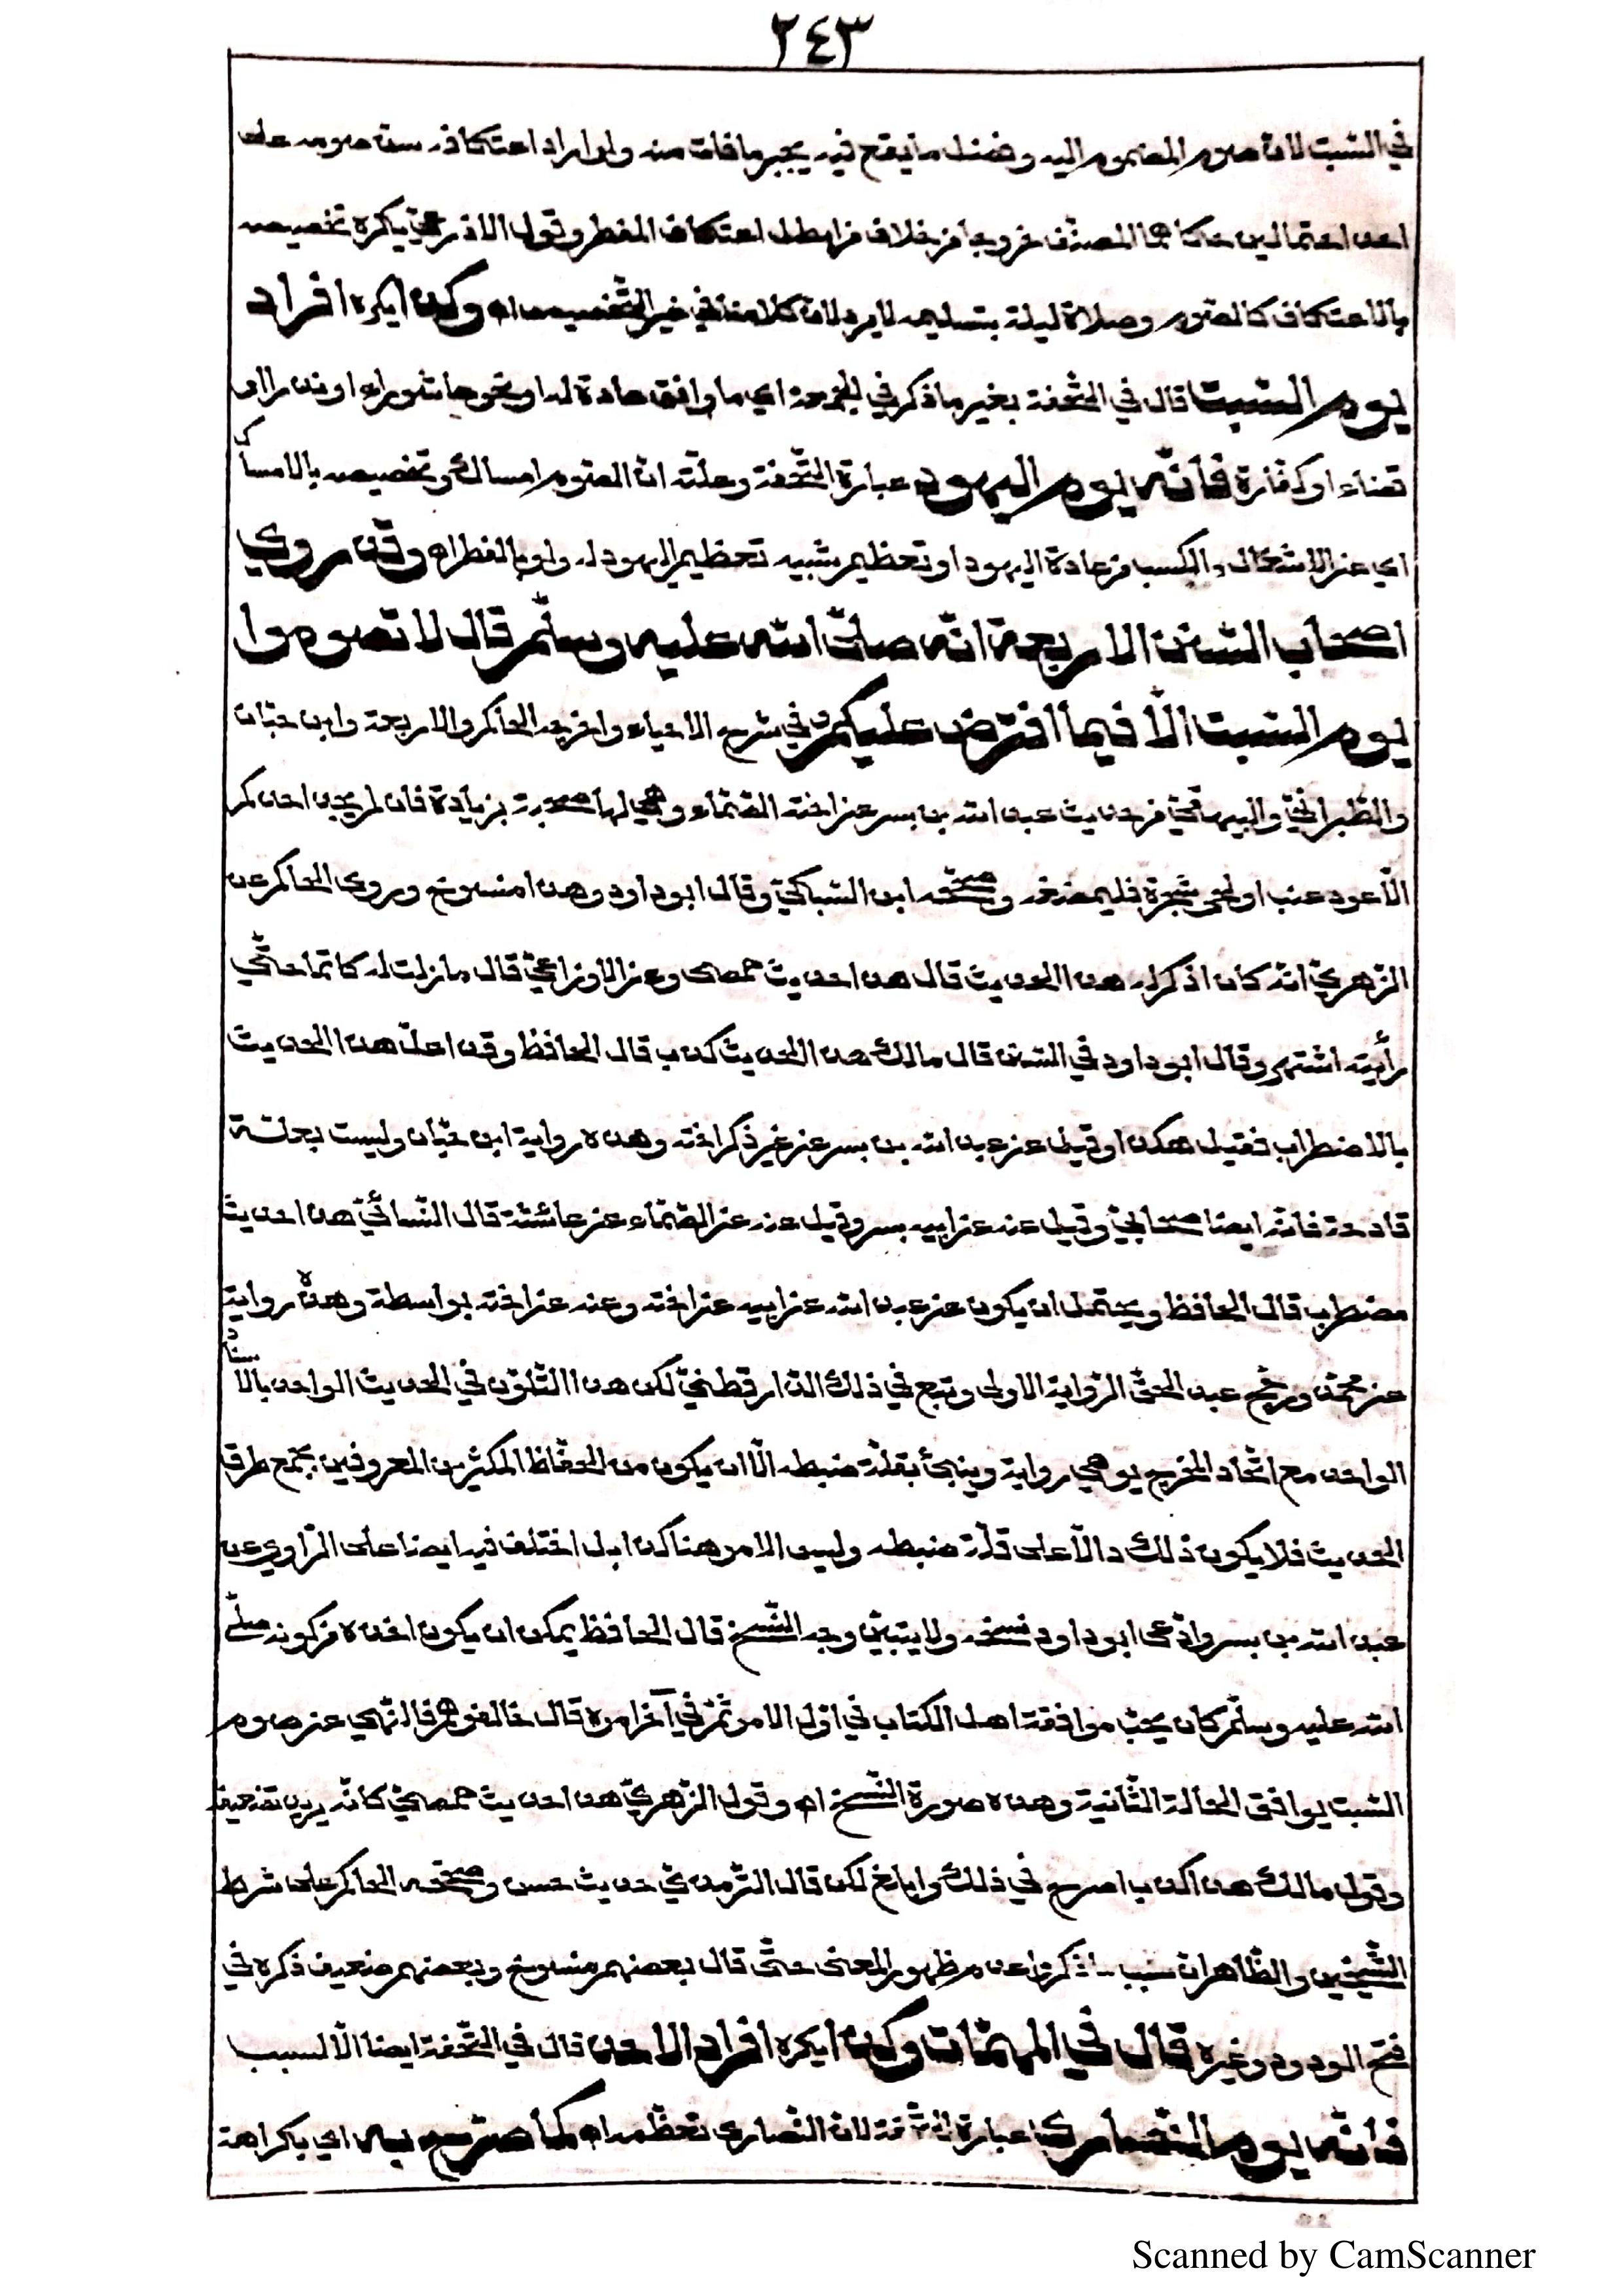 ٢٤٣
في السّبت لانّ صوم المضموم اليه وفضل ما يقع فيه يجبر ما فات منه ولو اراد اعتكافه سنّ صومه على
احد احتمالين حكاهما المصنّف خروجا من خلاف من ابطل اعتكاف المفطر وقول الاذرعيّ يكره تخصيصه
بالاعتكاف كالصّوم وصلاة ليلة بتسليمه لا يرد لانّ كلامنا في غير التّخصيص اه وكذا يكره افراد
يوم السّبت قال في التّحفة بغير ما ذكر في الجمعة اي ما وافق عادة له او نحو عاشوراء او نذر او
قضاء او كفّارة فانّه يوم اليهود عبارة التّحفة وعلّته انّ الصّوم امساك وتخصيصه بالامساك
اي عن الاشتغال والكسب من عادة اليهود او تعظيم يشبيه تعظيم اليهود له ولو بالفطر اه وقد روي
اصحاب السّنن الاربعة انّه صلّى الله عليه وسلّم قال لا تصوموا
يوم السّبت الّا فيما افترض عليكم وفي شرح الاحياء واخرجه الحاكم والاربعة وابن حبّان
والطّبرانيّ والبيهقيّ من حديث عبد الله بن بسر عن اخته الصّمّاء وهي لها صحبة بزيادة فان لم يجد احدكم
الّا عود عنب او لحى شجرة فليمضغه وصحّحه ابن السّباكيّ وقال ابو داود وهذا منسوخ وروى الحاكم عن
الزّهريّ انّه كان اذ ذكر له هذا الحديث قال هذا حديث حمصى وعن الاوزاعيّ قال ما زلت له كاتما حتّى
رأيته اشتهر وقال ابو داود في السّنن قال مالك هذا الحديث كذب قال الحافظ وقد اعلّ هذا الحديث
بالاضطراب فقيل هكذا وقيل عن عبد الله بن بسر عن غير ذكر اخته وهذه رواية ابن حبّان وليست بعلّة
قادحة فانّه ايضا صحابيّ وقيل عنه عن ابيه بسر وقيل عنه عن الصّمّاء عن عائشة قال النّسائيّ هذا حديث
مضطرب قال الحافظ ويحتمل ان يكون عن عبد الله عن ابيه عن اخته وعنه عن اخته بواسطة وهذه رواية
عن محمّد ورجّح عبد الحقّ الرّواية الاولى وتبع في ذلك الدّارقطنيّ لكن هذا التّلوّن في الحديث الواحد بالاسناد
الواحد مع اتّحاد المخرج يوهي رواية وينبئ بقلّة ضبطه الّا ان يكون من الحفّاظ المكثرين المعروفين بجمع طرق
الحديث فلا يكون ذلك دالّا على قلّة ضبطه وليس الامر هنا كذا بل اختلف فيه ايضا على الرّاوي عن
عبد الله بن بسر وادّعى ابو داود نسخه ولا يتبيّن وجه النّسخ قال الحافظ يمكن ان يكون اخذه من كونه صلّى
الله عليه وسلّم كان يحبّ موافقة اهل الكتاب في اوّل الامر ثمّ في آخر امره قال خالفوهم فالنّهي عن صوم
السّبت يوافق الحالة الثّانية وهذه صورة النّسخ اه وقول الزّهريّ هذا حديث حمصيّ كانّه يريد تضعيفه
وقول مالك هذا كذب اصرح في ذلك وابلغ لكن قال التّرمذيّ حديث حسن وصحّحه الحاكم على شرط
الشّيخين والظّاهر انّ سبب ما ذكروا عدم ظهور المعنى حتّى قال بعضهم منسوخ وبعضهم ضعيف ذكره في
فتح الودود وغيره قال في المهمّات وكذا يكره افراد الاحد قال في التّحفة ايضا الّا لسبب
فانّه يوم النّصارى عبارة التّحفة لانّ النّصارى تعظّمه اه كما صرّح به اي بكراهة
Scanned by CamScanner